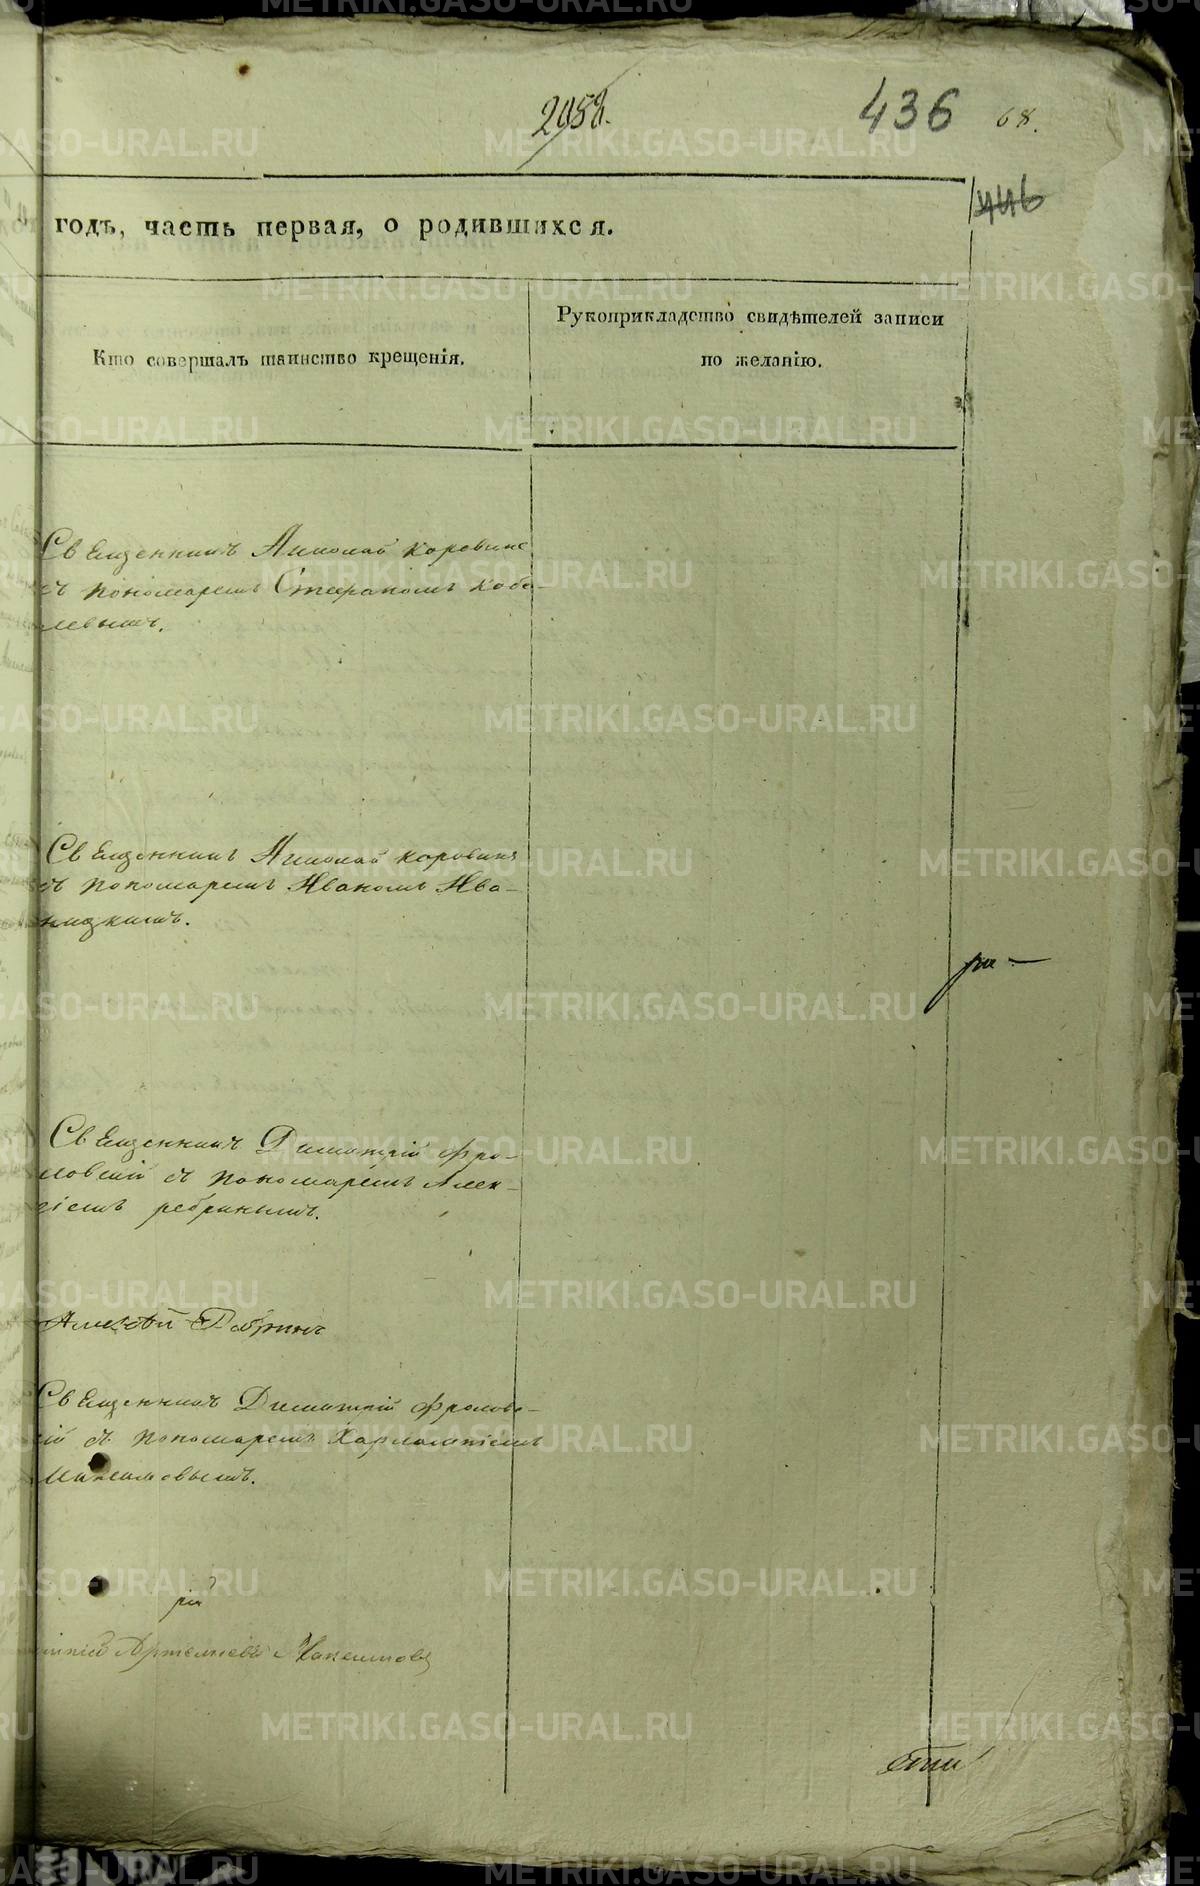 2058.
436
68.
446
годъ, часть первая, о родившихся.
Кто совершалъ таинство крещенія.
Рукоприкладство свидѣтелей записи
по желанію.
Священникъ Николай Коровинъ
съ пономаремъ Стефаномъ Кобе-
левымъ.
Священникъ Николай Коровинъ
съ пономаремъ Иваномъ Ива-
ницкимъ.
ре-
Священникъ Димитрій Фро-
ловскій съ пономаремъ Алек-
сіемъ Ребринымъ.
Алексѣй Ребринъ
Священникъ Димитрій Фроловс-
кій съ пономаремъ Харлампіемъ
Максимовымъ.
Артемьевъ Максимовъ
METRIKI.GASO-URAL.RU